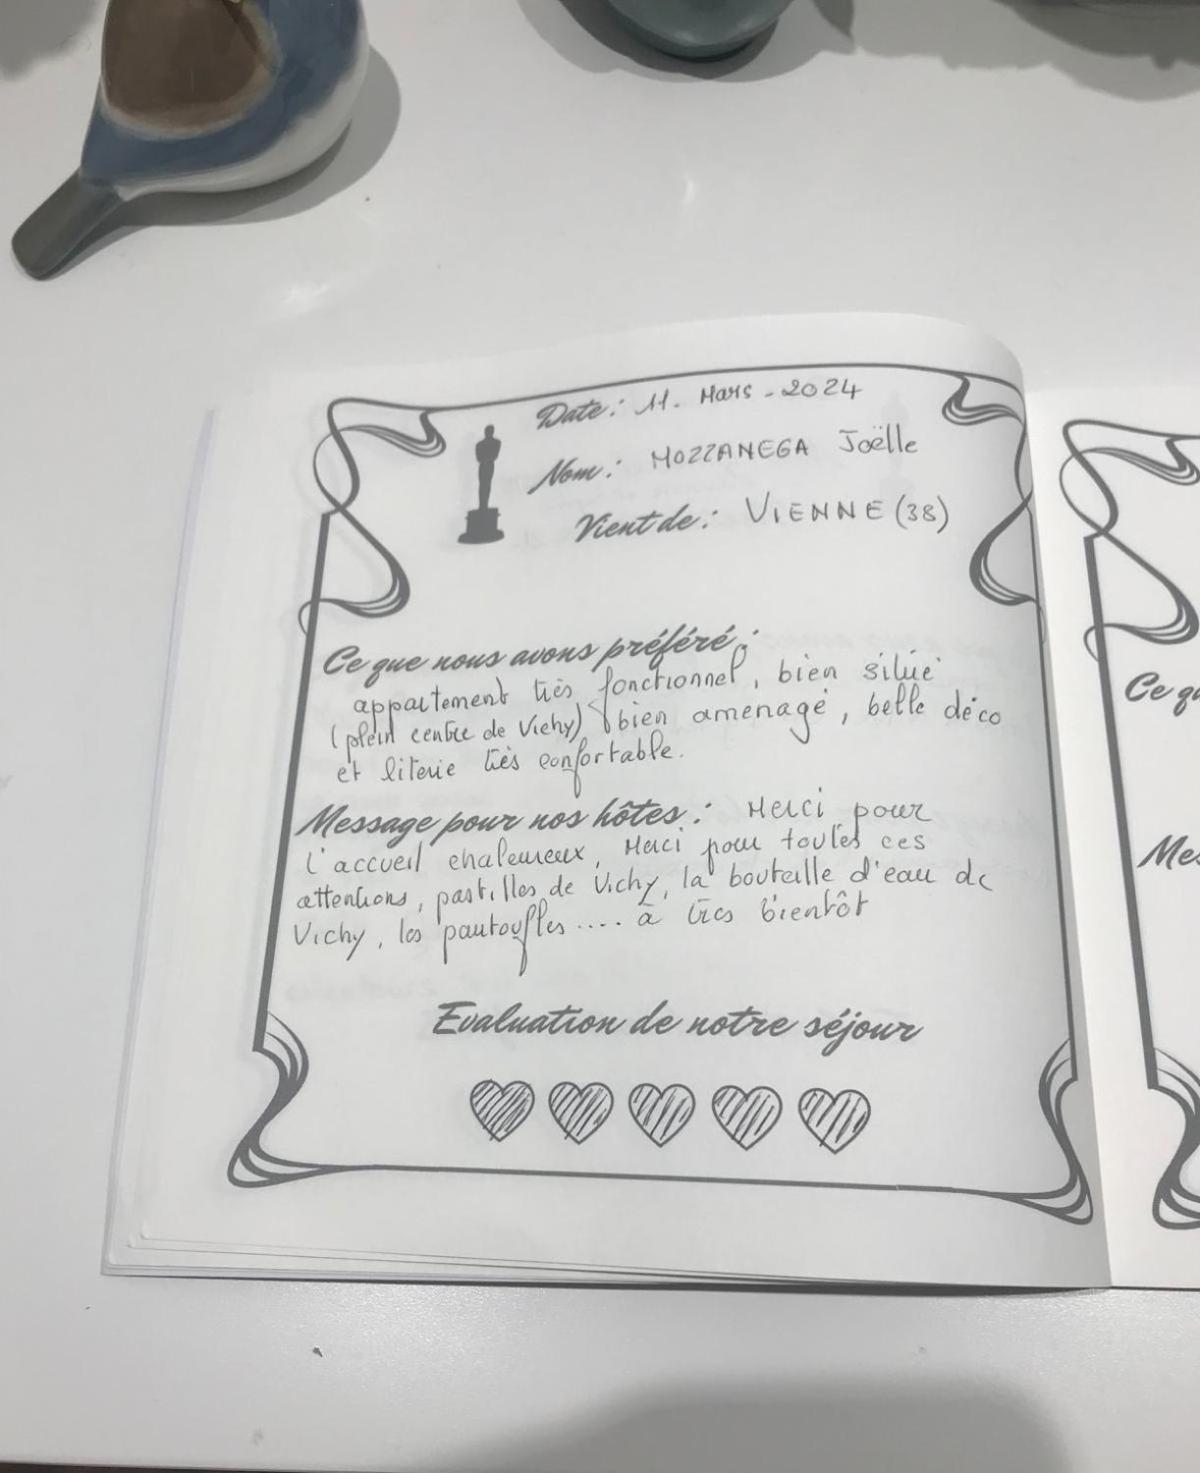 Date : 11. Mars - 2024
Nom : MOZZANEGA Joëlle
Vient de : VIENNE (38)
Ce que nous avons préféré :
appartement très fonctionnel, bien situé
(plein centre de Vichy) bien aménagé, belle déco
et literie très confortable.
Message pour nos hôtes : Merci pour
l'accueil chaleureux, Merci pour toutes ces
attentions, pastilles de Vichy, la bouteille d'eau de
Vichy, les pantoufles .... à très bientôt
Evaluation de notre séjour
Ce qu
Mes